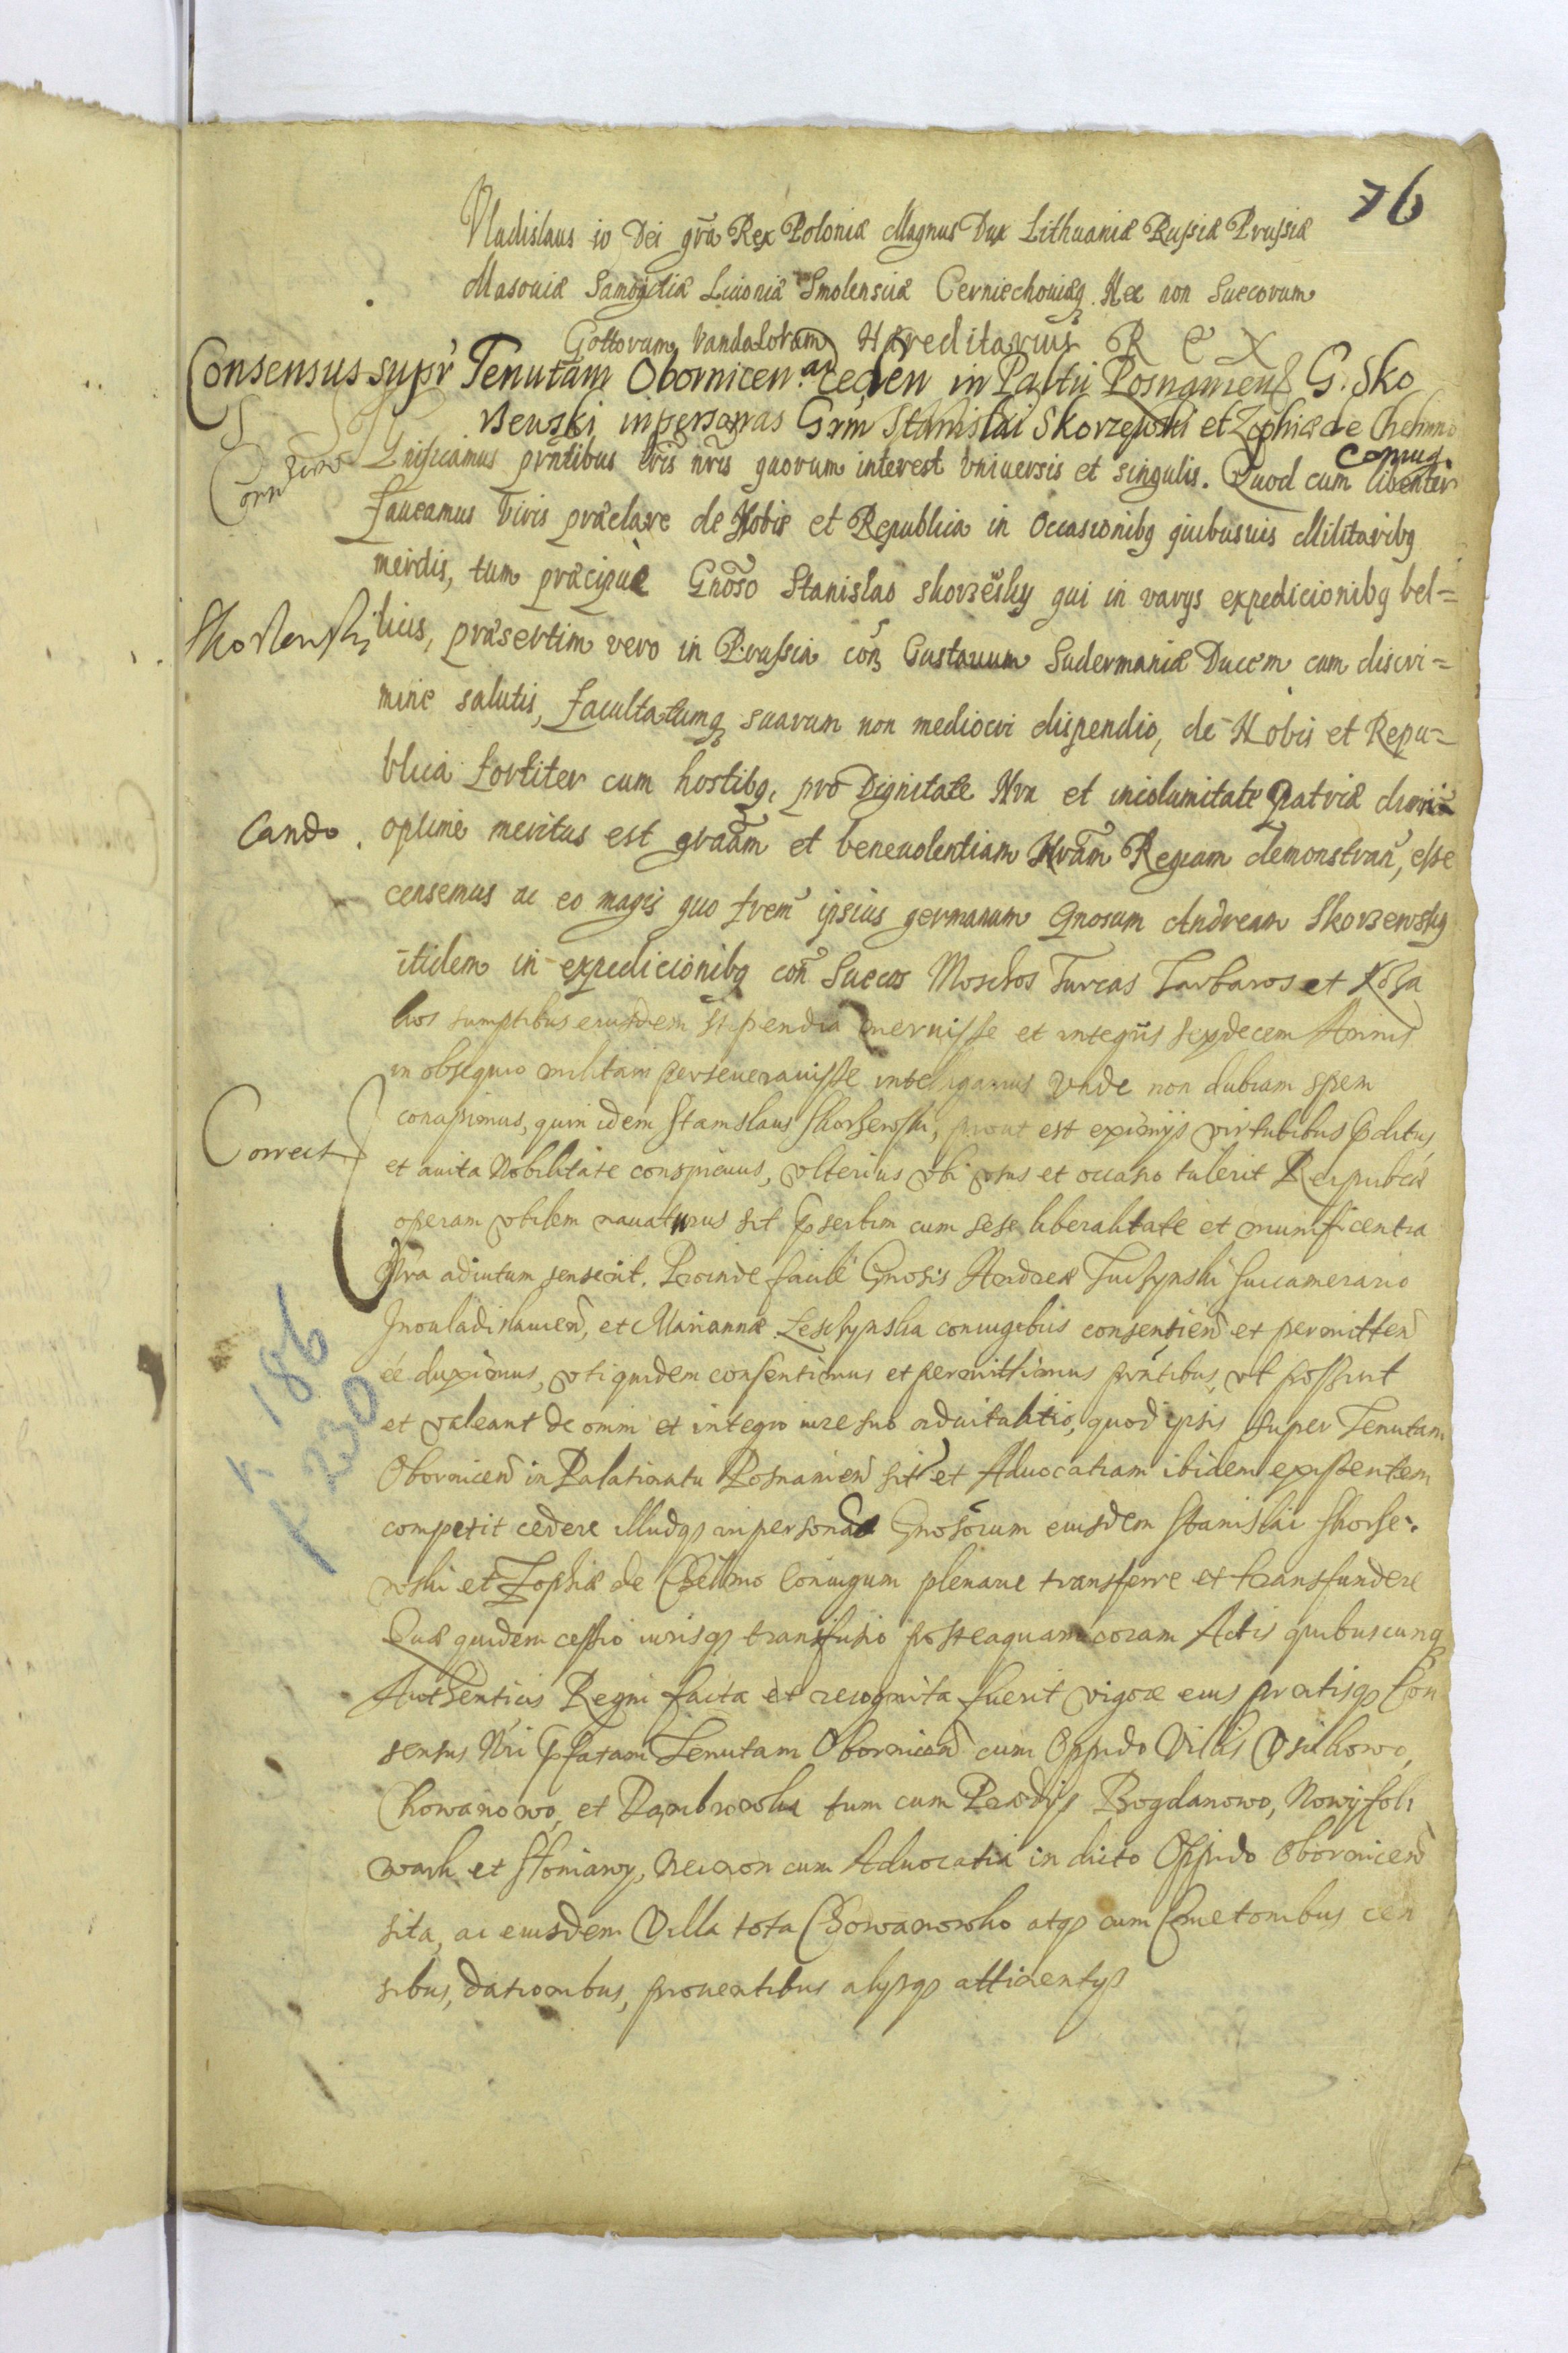 76
Vladislaus iv Dei gra Rex Poloniæ Magnus Dux Lithuaniæ Russiæ Prussiæ
Masoviæ Samogitiæ Livoniæ Smolensciæ Cerniechoviæq Nec non Suecorum
Gottorum Vandalorum Hæreditarius REX
Consensus supr Tenutam Obornicen ad ceden in Paltu Posnaniens G. Sko
rzewski in personas Grm Stanislai Skorzewski et Zophiæ de Chelmno
coniug.
Significamus prntibus lris nris quorum interest vniuersis et singulis. Quod cum libenter
faueamus Viris præclare de Nobis et Republica in Occasionibq quibusuis Militaribq
meritis, tum præcipuè Gnoso Stanislao Skorzesky qui in varys expedicionibq bel=
Skorzewski
licis, præsertim vero in Prussia con Gustauum Sudermaniæ Ducem cum discri=
mine salutis, facultatumq suarum non mediocri dispendio, de Nobis et Repu=
blica fortiter cum hostibq, pro Dignitate Nra et incolumitate Patriæ dimi=
cando.
optime meritus est graam et beneuolentiam Nram Regiam demonstran, esse
censemus ac eo magis quo frem ipsius germanum Gnosum Andream Skorzewsky
itidem in expedicionibq con Suecos Moschos Turcas Tartaros et Kosa
kos sumptibus eiusdem stipendia meruisse et integris sexdecem Annis
in obsequio militari perseuerauisse intelligamus Vnde non dubiam spem
Correct
concipimus, quin idem Stanislaus Skorzewski, prout est eximijs virtutibus pditus,
et auita Nobilitate conspicuus, vlterius vbi vsus et occasio tulerit Reipublicæ
operam vtilem nauaturus sit psertim cum sese liberalitate et munificentia
Nra adiutum senserit. Proinde facilè Gnosis Andreæ Tuczynski succamerario
Jnouladislauien, et Mariannæ Lesczynska coniugibus consentien et permitten
ee duximus, vti quidem consentimus et permittimus prntibus, vt possint
et valeant de omni et integro iure suo aduitalitio, quod ipsis super Tenutam
Obornicen in Palatinatu Posnanien sit et Aduocatiam ibidem existentem
competit cedere illudq in personas Gnosorum eiusdem Stanislai Skorze=
wski et Zophiæ de Chelmno Coniugum plenarie transferre et transfundere
Quæ quidem cessio iurisq transfusio posteaquam coram Actis quibuscunq
Authenticis Regni facta et recognita fuerit vigore eius pntisq Con
sensus Nri pfatam Tenutam Obornicen cum Oppido Villis Vscikowo,
Chowanowo, et Dambrowka tum cum Prædijs Bogdanowo, Nowyfol
wark et Stoniawy, necnon cum Aduocatia in dicto Oppido Obornicen
sita, ac eiusdem Villa tota Chowanowko atq cum Cmetonibus cen
sibus, dationibus, prouentibus alysq attinentys
k. 186
p. 230